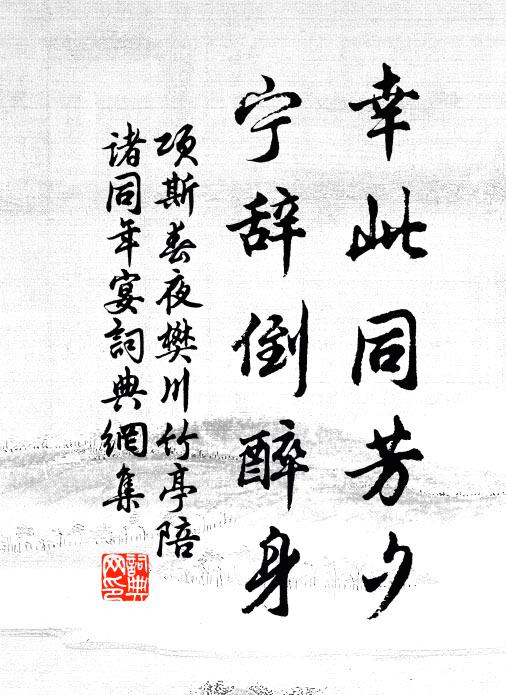 幸此同芳夕
宁辞倒醉身
项斯春夜樊川竹亭陪
诸同年宴詞典網集
詞典
网印